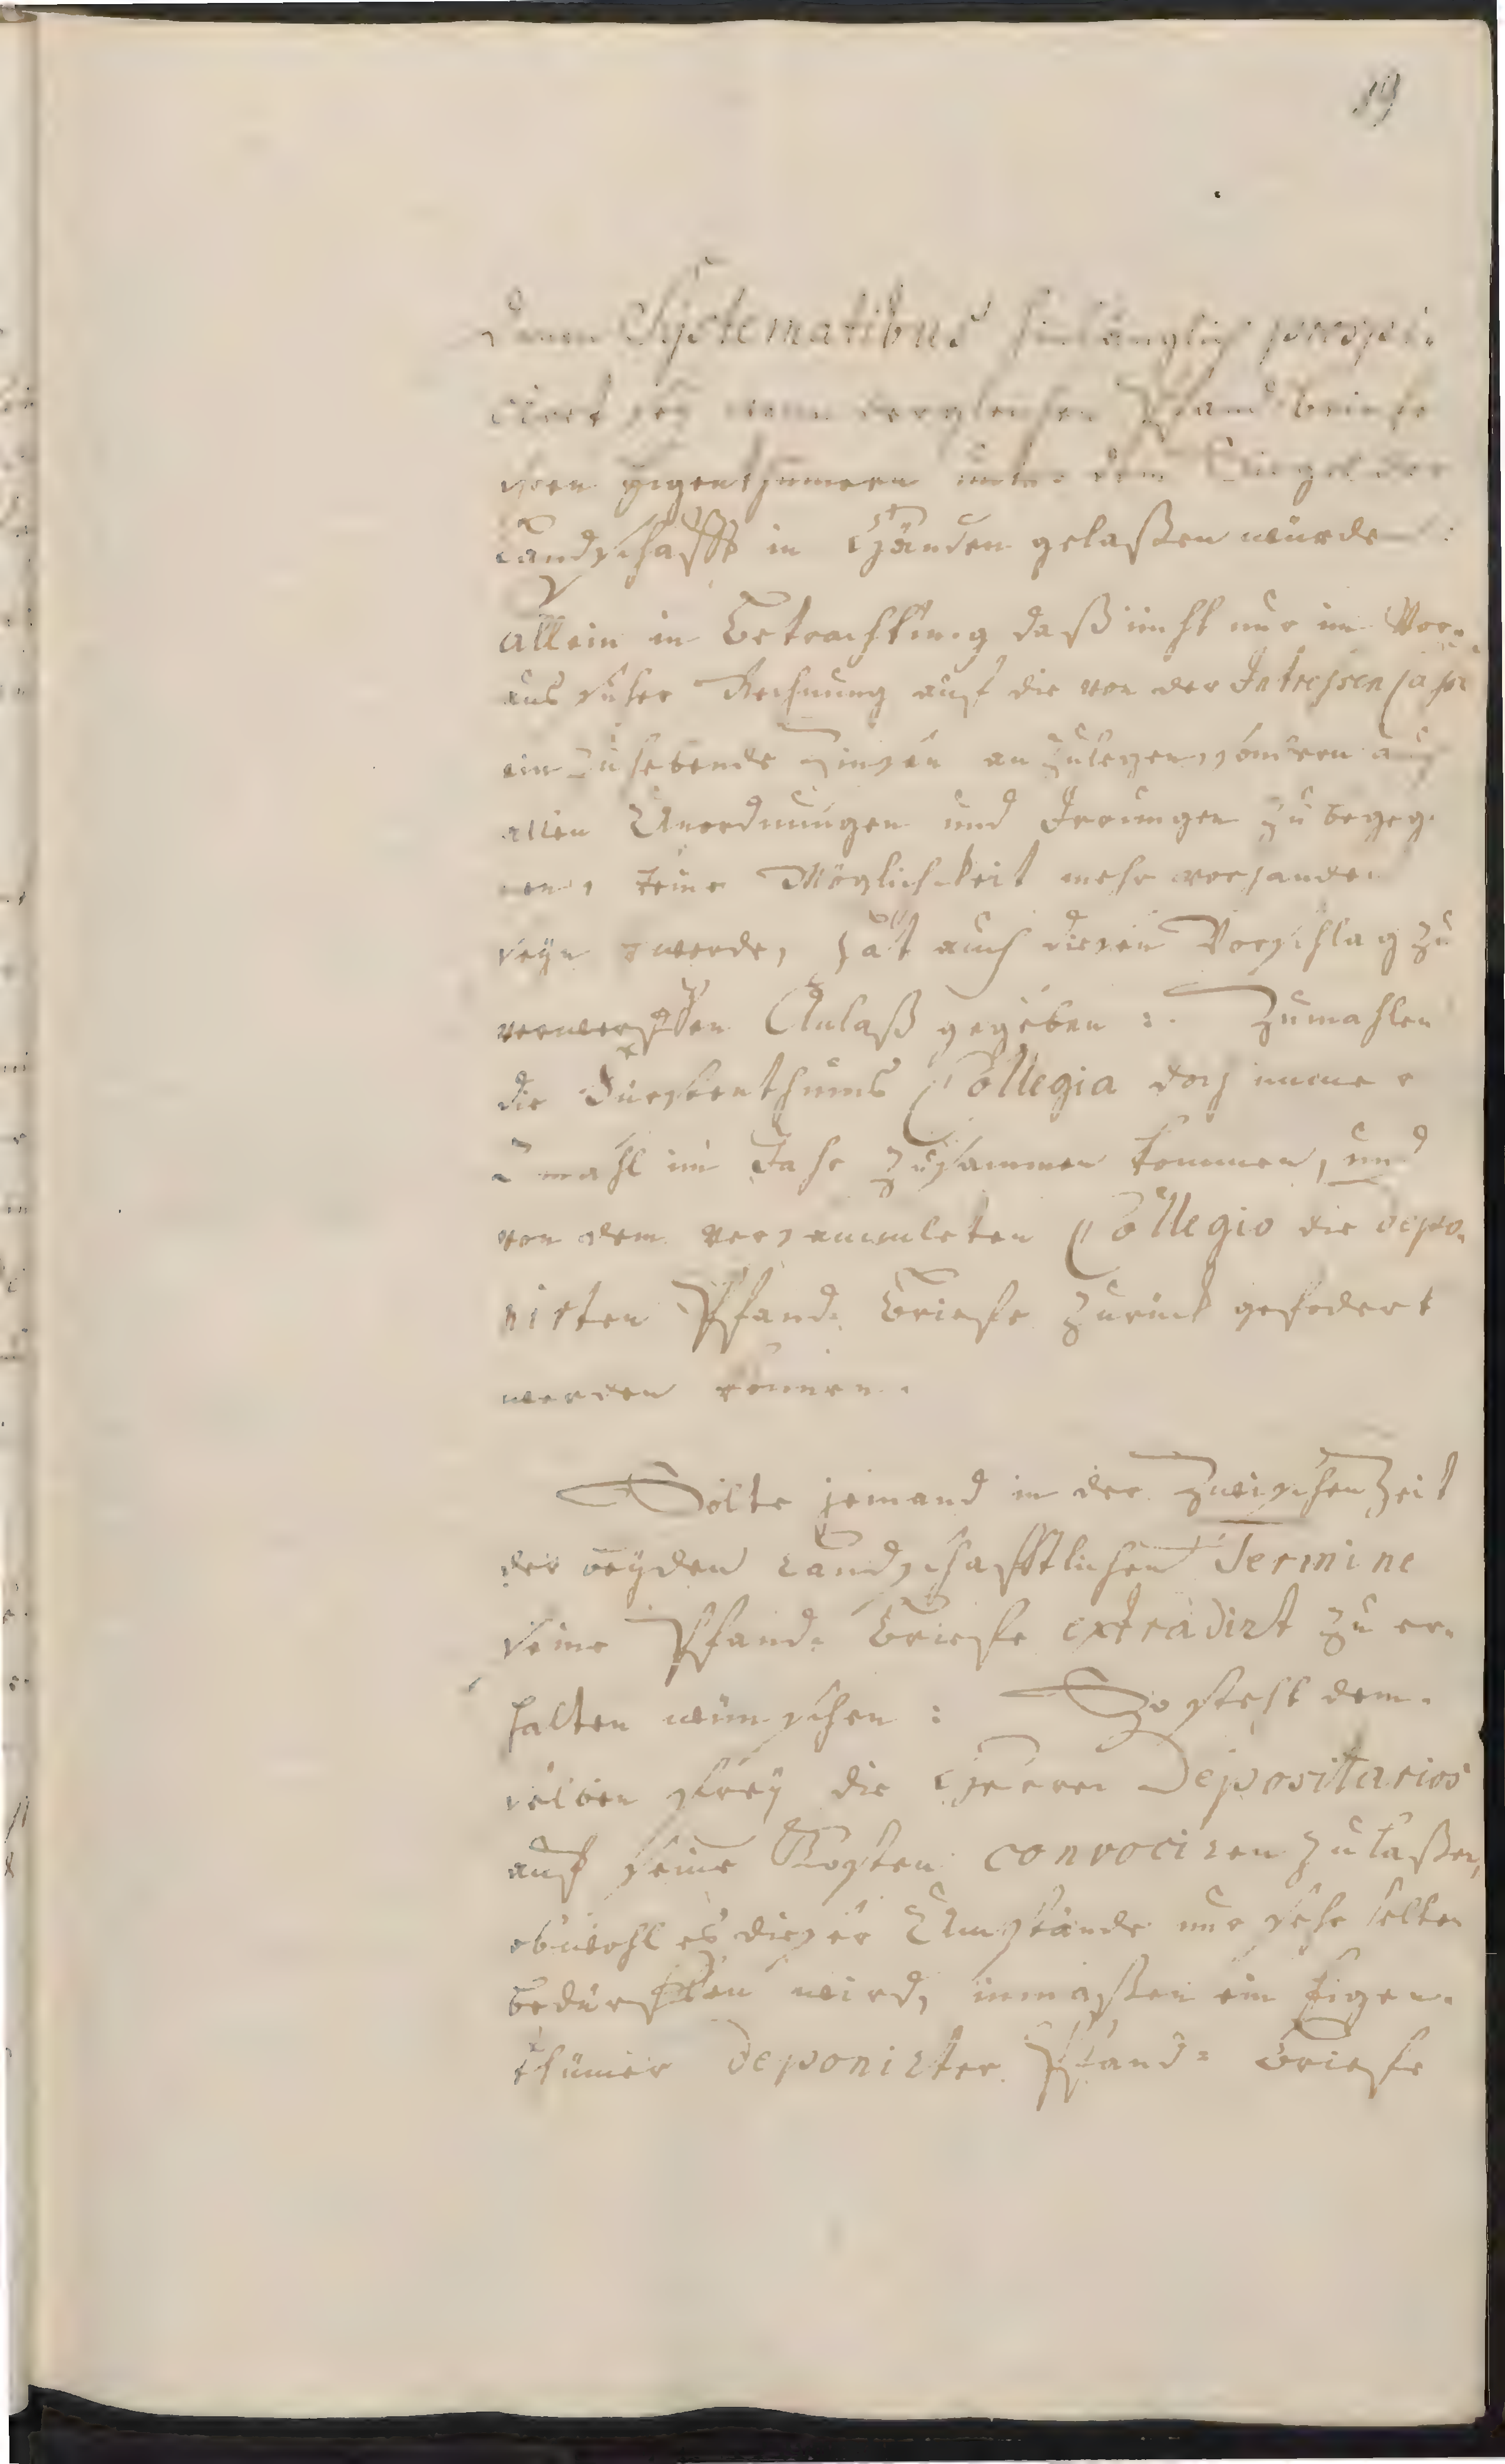 39
denen Systematibus hinlänglich prospi-
ciret sey wenn dergleichen Pfand-Briefe
ihren Eigenthümern unter dem Siegel der
Landschafft in Händen gelaßen würde :
allein in Betrachtung daß nicht nur im Vor-
aus sicher Rechnung auf die von der Intressen
ein zu hebende Zinsen an zulegen, sondern auch
allen Unordnungen und Irrungen zu begeg-
nen, keine Möglichkeit mehr vorhanden
seyn werde, hat auch diesen Vorschlag zu
verwerffen Anlaß gegeben :. Zumahlen
die Fürstenthums Collegia doch immer
2 mahl im Jahr zusammen kommen, und
von dem versammleten Collegio die depo-
nirten Pfand-Briefe zurück gefodert
werden können.
Solte jemand in der Zwischen Zeit
der beyden Landschafftlichen Termine
seine Pfand-Briefe extradirt zu er-
halten wünschen : So steht dem-
selben frey die Herren Depositarios
auf seine Kosten convociren zu laßen,
obwohl es dieser Umstände nur sehr selten
bedürffen wird, inmaßen ein Eigen-
thümer deponirter Pfand-Briefe